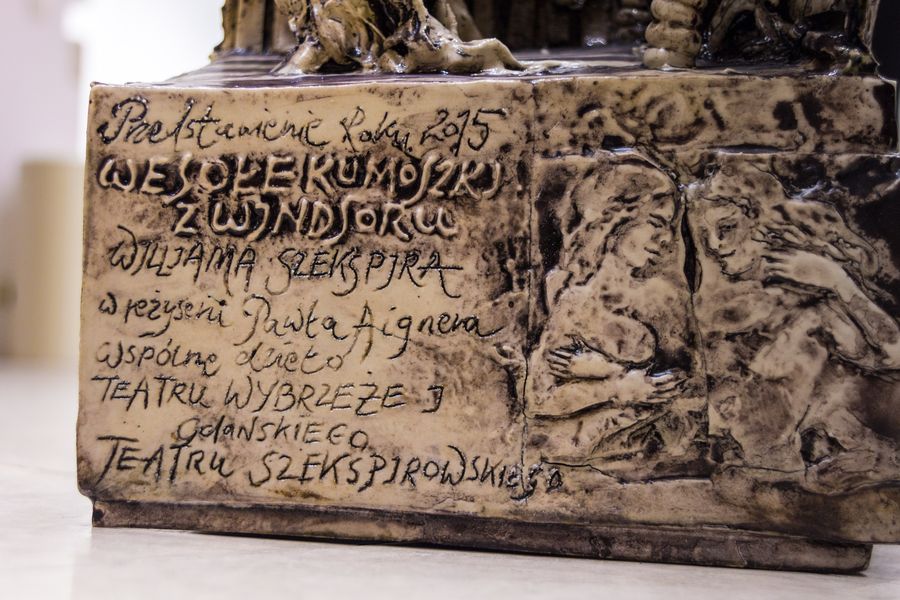 Przedstawienie Roku 2015
WESOŁE KUMOSZKI
Z WINDSORU
WILJAMA SZEKSPJRA
w reżyserii Pawła Aignera
wspólne dzieło
TEATRU WYBRZEŻE J
GDAŃSKIEGO
TEATRU SZEKSPJROWSKIEGO